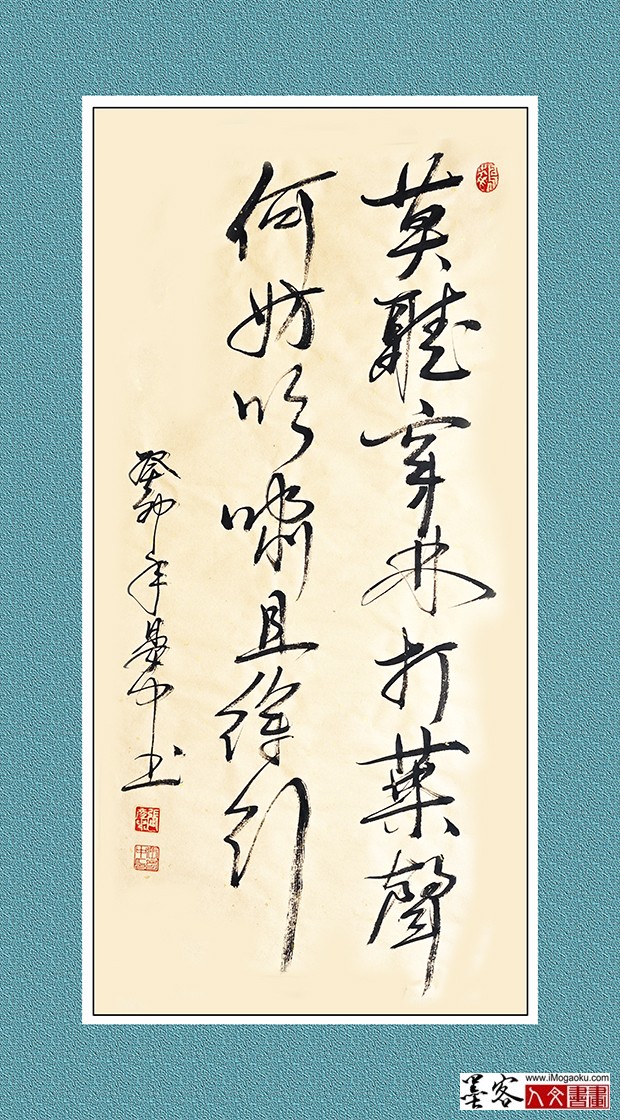 莫聽穿林打葉聲
何妨吟嘯且徐行
癸卯年晏中书
墨客
www.iMogaoku.com
人文書畫